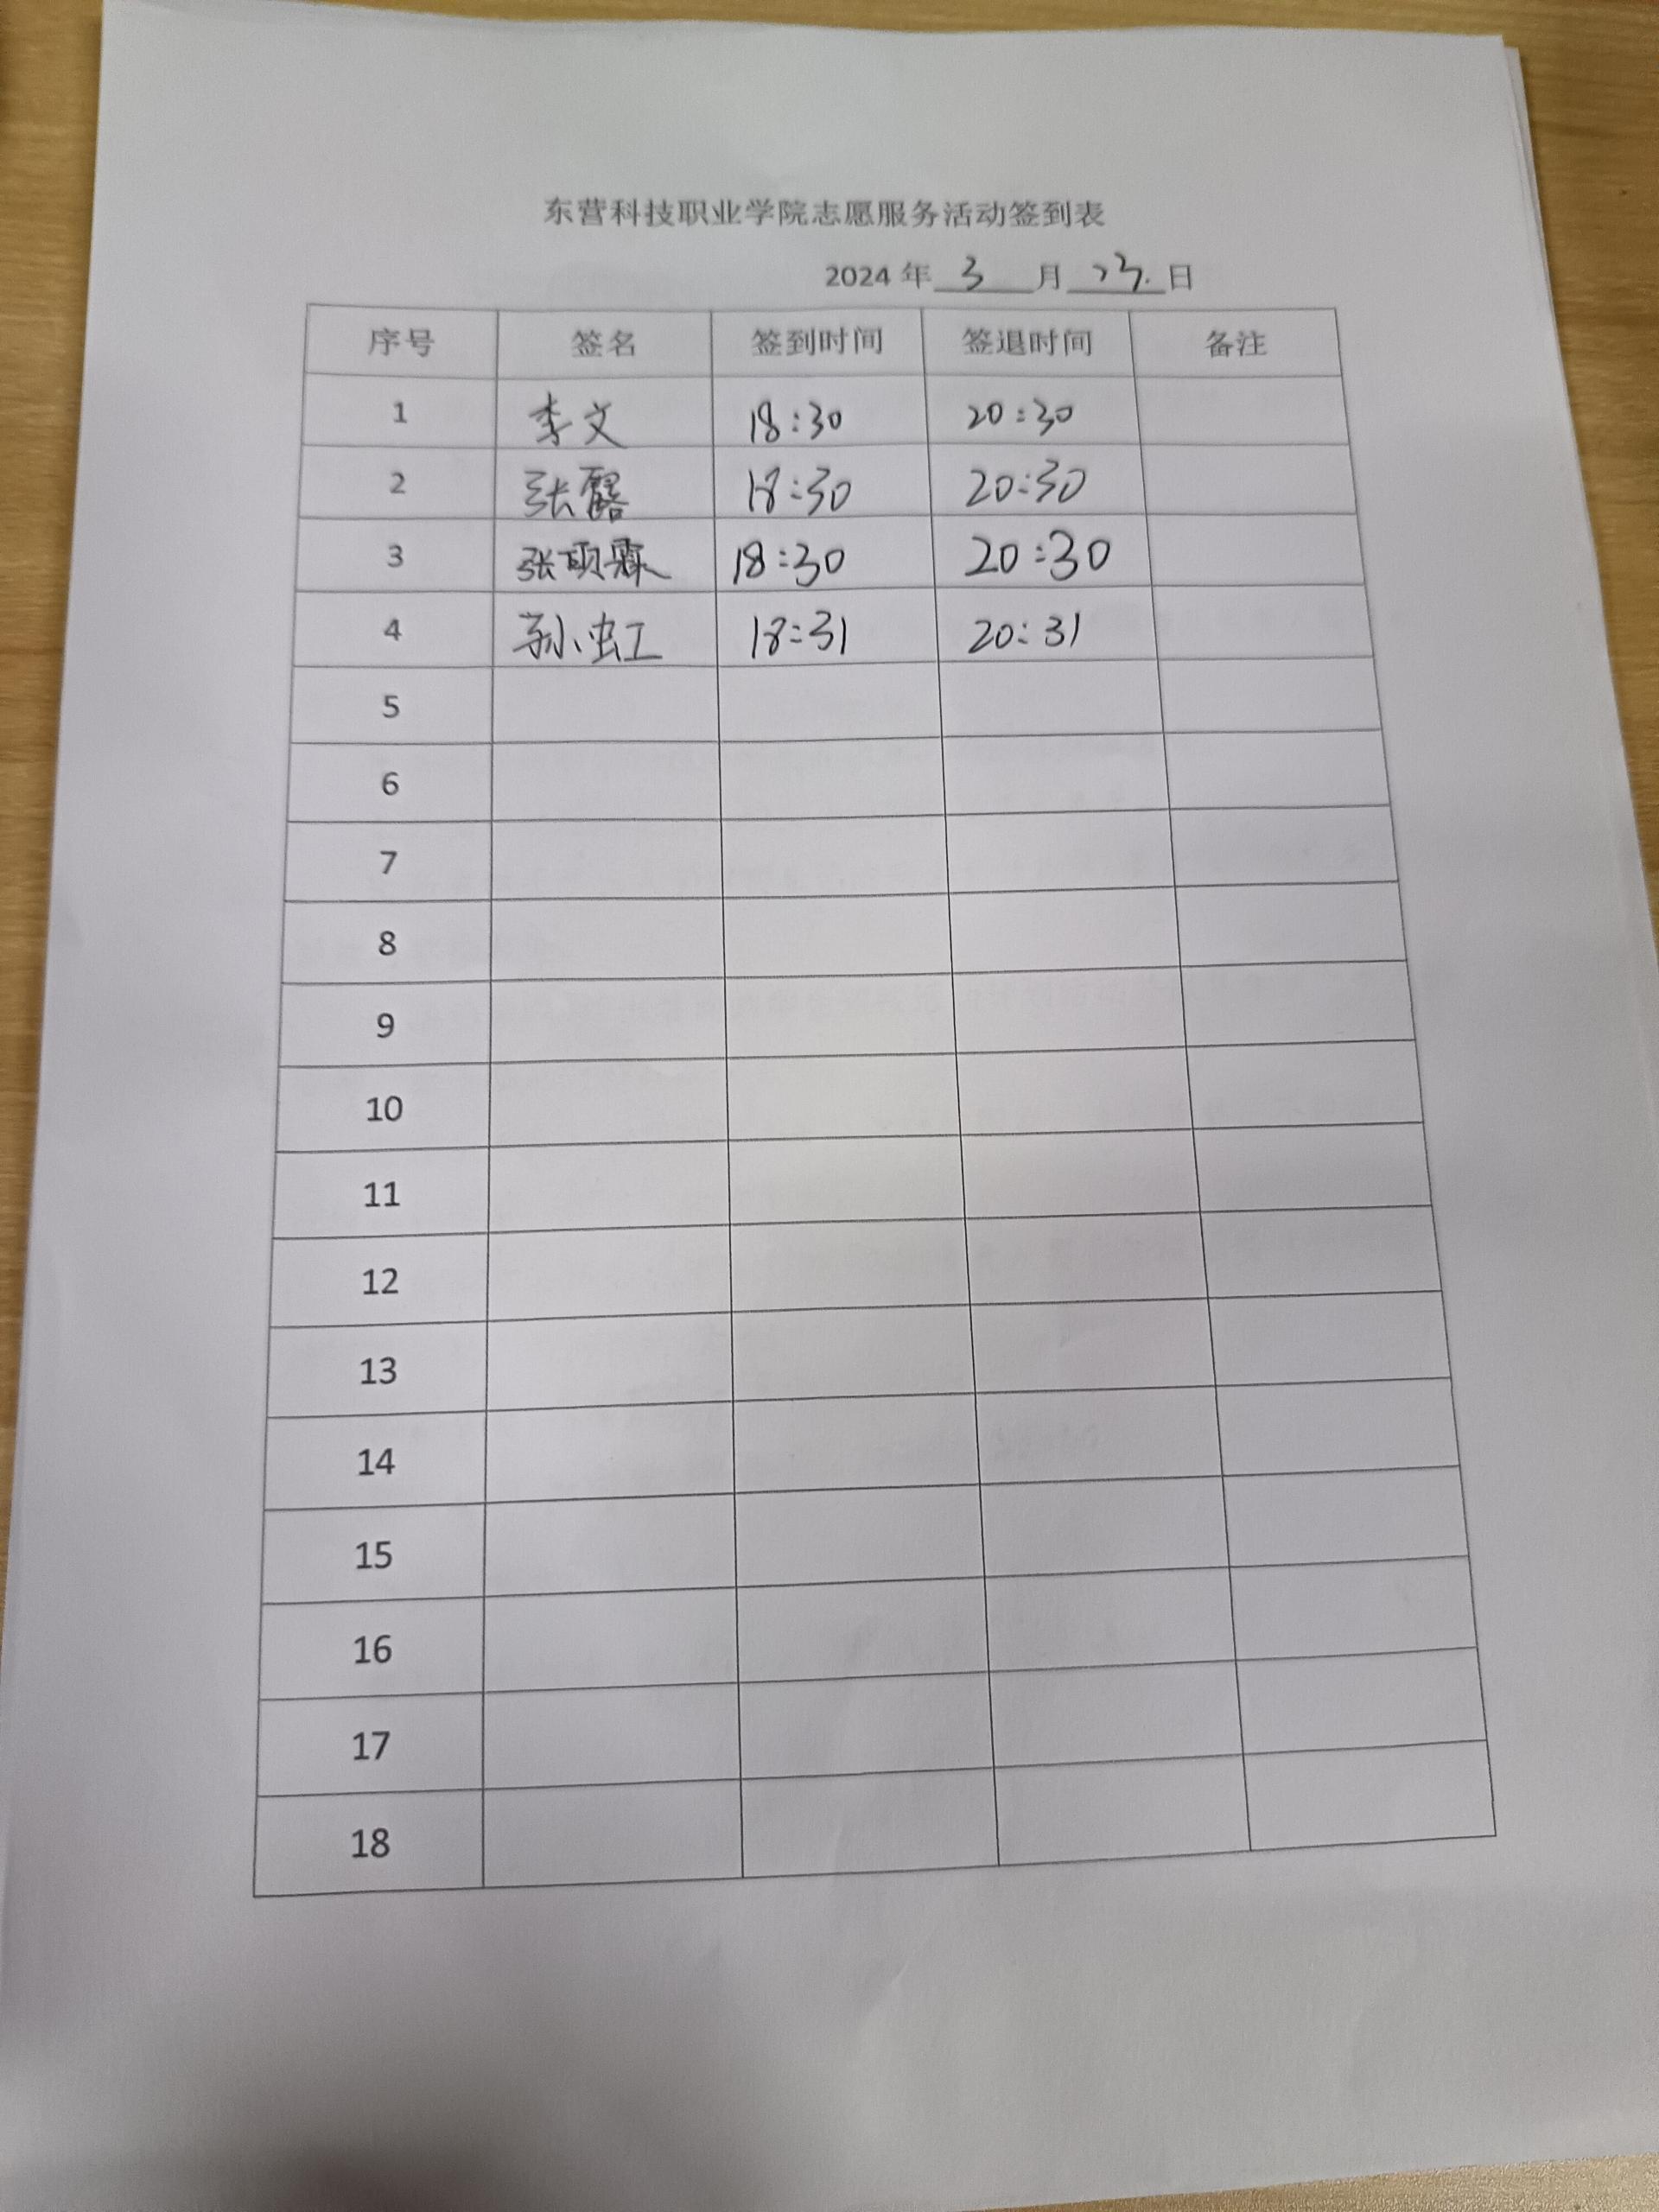 东营科技职业学院志愿服务活动签到表
2024 年 3 月 23. 日
序号 签名 签到时间 签退时间 备注
1 李文 18:30 20:30
2 张露 18:30 20:30
3 张硕霖 18:30 20:30
4 孙虹 18:31 20:31
5
6
7
8
9
10
11
12
13
14
15
16
17
18